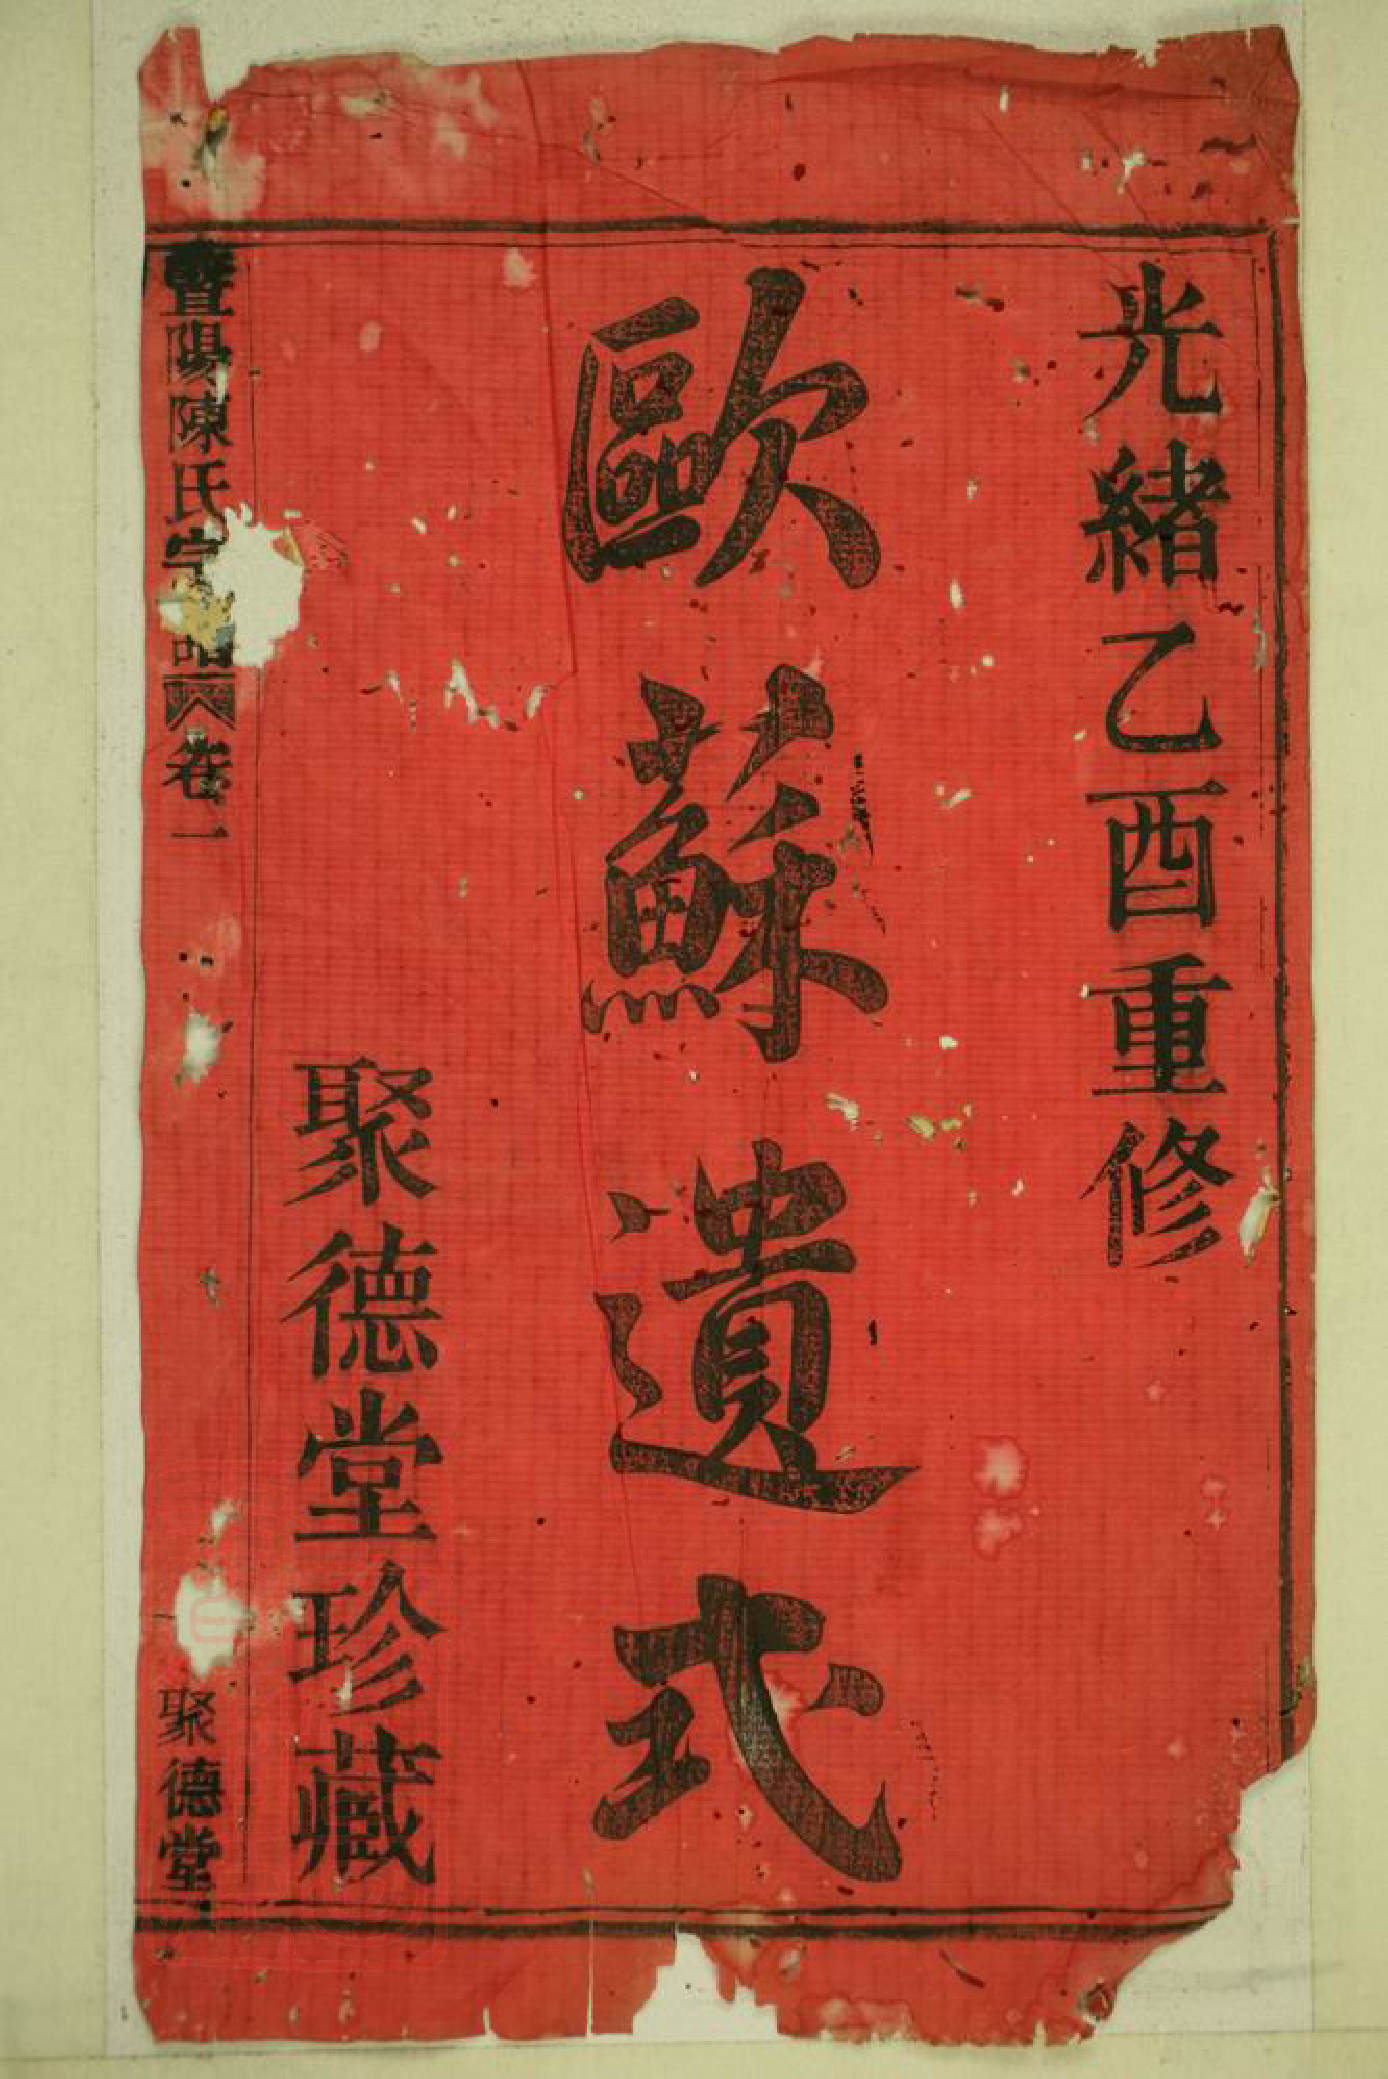 光緒乙酉重修
歐蘇遺式
聚德堂珍藏
暨陽陳氏宗譜 卷一
聚德堂